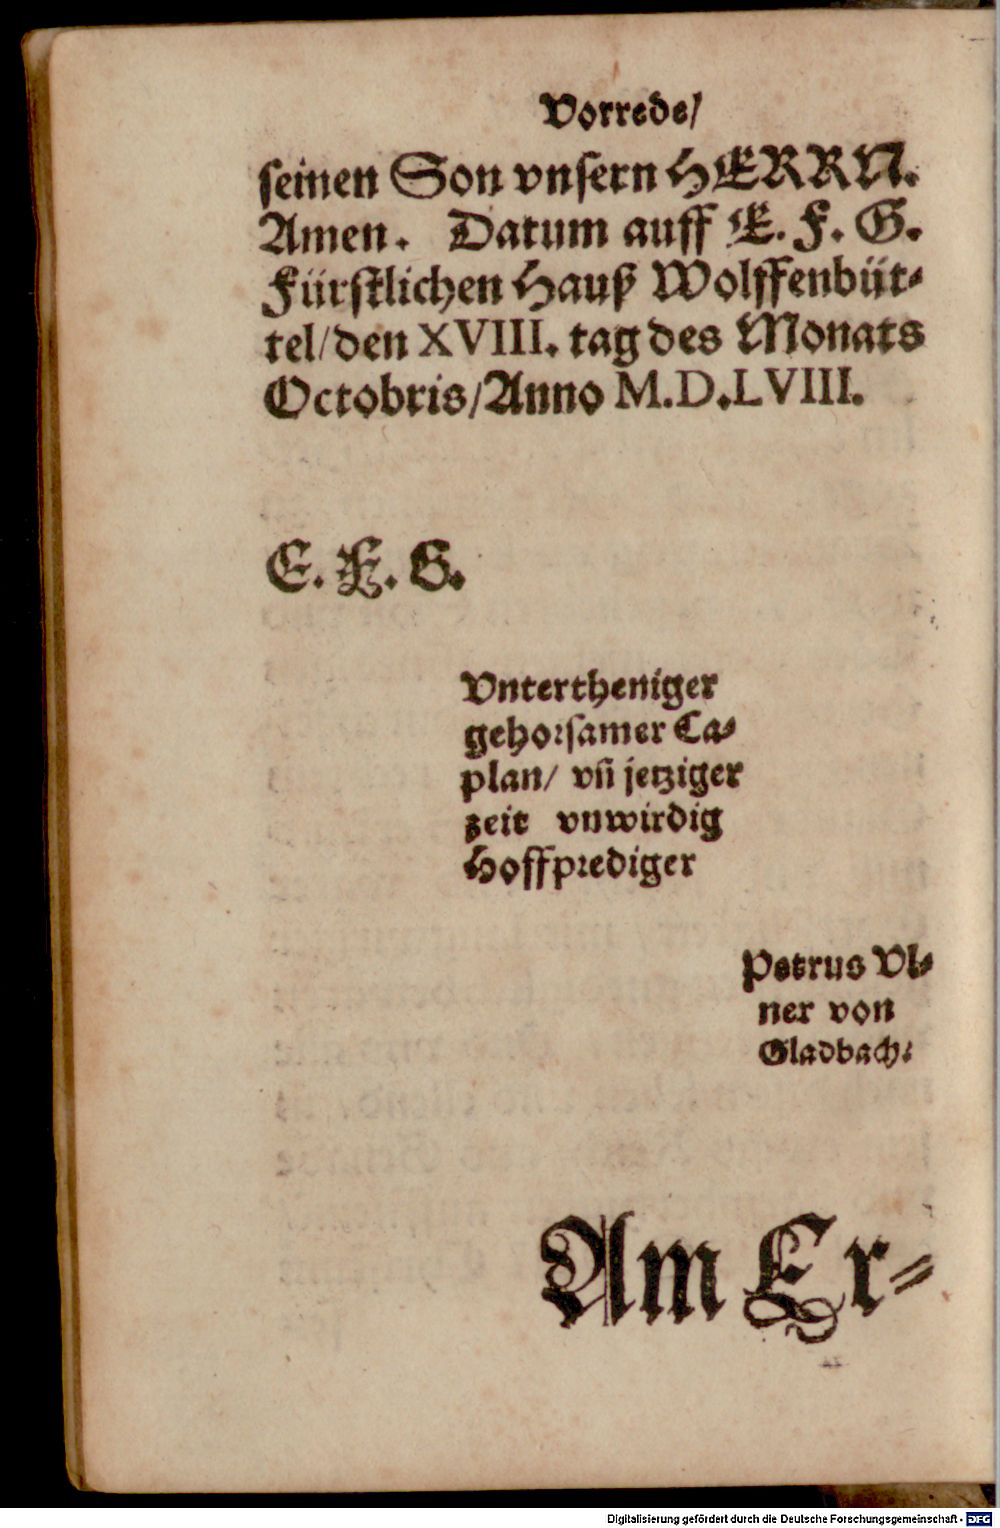 Vorrede/
ſeinen Son vnſern HERRN.
Amen. Datum auff E. F. G.
Fürſtlichen Hauß Wolffenbüt⸗
tel/den XVIII. tag des Monats
Octobris/Anno M.D.LVIII.
E. F. G.
Vntertheniger
gehorſamer Ca⸗
plan/ vñ jetziger
zeit vnwirdig
Hoffprediger
Petrus Vl⸗
ner von
Gladbach.
Am Er⸗
Digitalisierung gefördert durch die Deutsche Forschungsgemeinschaft - DFG